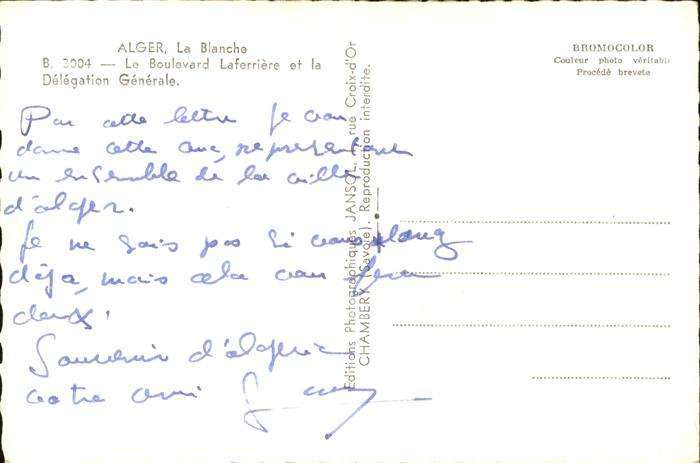 ALGER, La Blanche
B. 3004 — Le Boulevard Laferrière et la
Délégation Générale.
BROMOCOLOR
Couleur photo véritable
Procédé breveté
Editions Photographiques JANSOL, rue Croix-d'Or
CHAMBERY (Savoie). Reproduction interdite.
Par cette lettre je
dans cette vue, représentant
un ensemble de la ville
d'alger.
Je ne sais pas si vous
déjà, mais cela
deux!
Souvenir d'algérie
votre ami